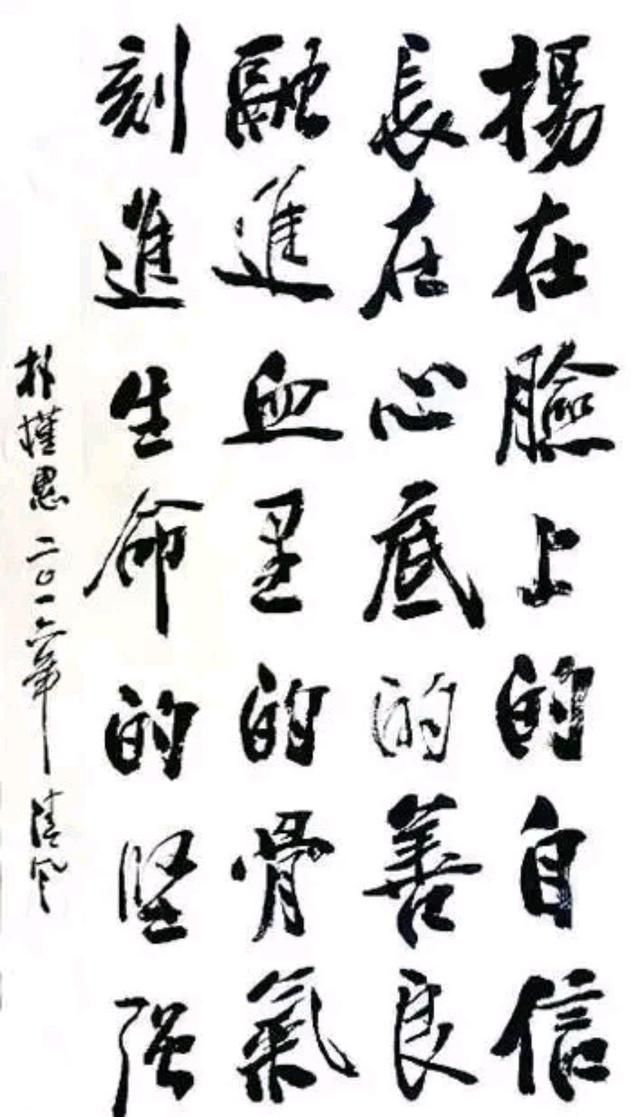 揚在臉上的自信
長在心底的善良
融進血里的骨氣
刻進生命的坚强
二〇一六年 清风